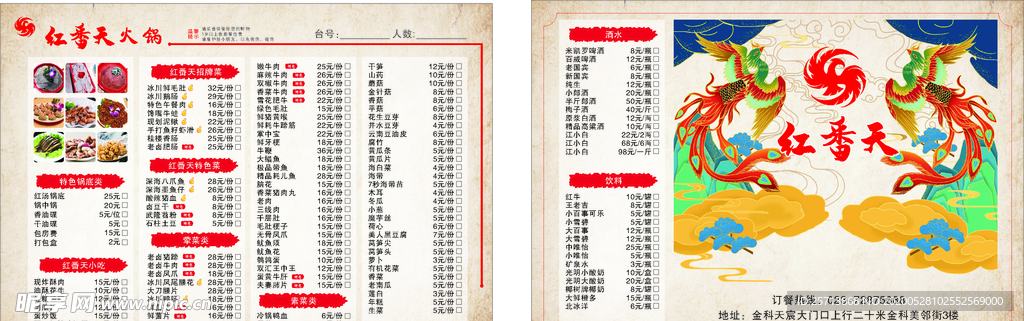 红番天火锅
台号：
人数：
特色锅底类
红汤锅底 25元/份
锅中锅 20元/份
香油碟 5元/位
干油碟 5元/份
包房费 15元/份
打包盒 2元/份
红番天小吃
现炸酥肉 15元/份
红番天招牌菜
冰川鲜毛肚 32元/份
冰川鹅肠 29元/份
特色牛餐肉 16元/份
馋嘴牛蛙 18元/份
现划泥鳅 22元/份
手打鱼籽虾滑 26元/份
桂楼香肠 25元/份
老卤肥肠 25元/份
红番天特色菜
深海八爪鱼 28元/份
深海墨鱼仔 26元/份
酸辣猪血 8元/份
卤豆干 8元/份
武隆苕粉 8元/份
石柱土豆 5元/份
荤菜类
老卤猪蹄 28元/份
老卤牛肉 28元/份
老卤凤爪 18元/份
冰川凤尾腰花 28元/份
大刀腰片 28元/份
嫩牛肉 25元/份
麻辣牛肉 26元/份
双椒牛肉 26元/份
香菜牛肉 26元/份
雪花肥牛 22元/份
绿色毛肚 15元/份
鲜猪黄喉 25元/份
鲜耗牛蹄筋 22元/份
军中宝 22元/份
鲜牛牙梗 18元/份
牛鞭 36元/份
大鳐鱼 18元/份
极品带鱼 18元/份
精品耗儿鱼 28元/份
脑花 15元/份
香菜猪肉丸 16元/份
老肉 16元/份
三线肉 16元/份
千层肚 15元/份
毛肚梗子 15元/份
无骨凤爪 15元/份
鱿鱼须 18元/份
鱿鱼花 15元/份
鹌鹑蛋 10元/份
双汇王中王 12元/份
蛋黄牛肝 15元/份
夫妻肺片 15元/份
素菜类
冷锅鸭血 6元/份
干笋 12元/份
山药 10元/份
蘑菇 10元/份
金针菇 8元/份
香菇 8元/份
平菇 6元/份
花生豆芽 8元/份
井水豆芽 4元/份
云南豆油皮 6元/份
腐竹 8元/份
黄瓜条 5元/份
黄瓜片 5元/份
海白菜 4元/份
海带 4元/份
7秒海带苗 5元/份
木耳 4元/份
冬瓜 4元/份
小葱 5元/份
魔芋丝 5元/份
荷心 6元/份
美人黑豆腐 7元/份
莴笋尖 5元/份
莴笋头 5元/份
萝卜 5元/份
有机花菜 5元/份
香菜 5元/份
老南瓜 5元/份
莲白 3元/份
年糕 5元/份
生菜 5元/份
酒水
米凯罗啤酒 8元/瓶
百威啤酒 12元/瓶
老国宾 6元/瓶
新国宾 8元/瓶
纯生 12元/瓶
小郎酒 20元/瓶
半斤郎酒 50元/瓶
梅子酒 40元/斤
原浆白酒 12元/斤
精品高粱酒 10元/斤
江小白 22元/2两
江小白 68元/6两
江小白 98元/一斤
饮料
红牛 10元/罐
王老吉 8元/罐
小百事可乐 5元/罐
小雪碧 5元/罐
大百事 12元/瓶
大雪碧 12元/瓶
中唯怡 25元/瓶
小唯怡 5元/瓶
矿泉水 3元/瓶
光明小酸奶 10元/盒
光明大酸奶 20元/瓶
椰树牌椰奶 8元/罐
大鲜橙多 15元/瓶
北冰洋 6元/瓶
红番天
地址：金科天宸大门口上行二十米金科美邻街3楼